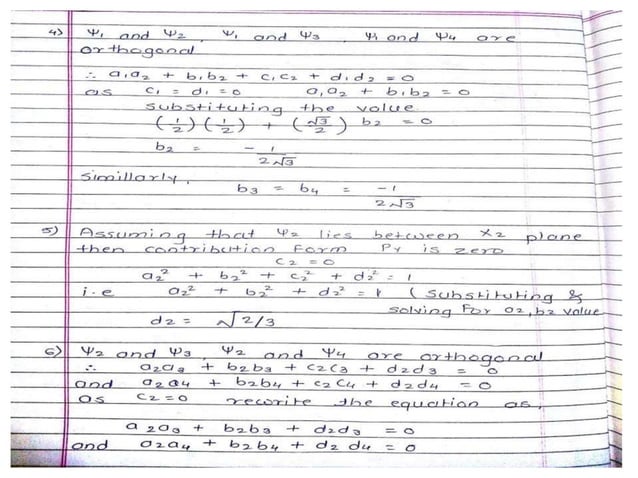 4) Ψ1 and Ψ2, Ψ1 and Ψ3, Ψ1 and Ψ4 are
orthogonal
∴ a1a2 + b1b2 + c1c2 + d1d2 = 0
as c1 = d1 = 0 a1a2 + b1b2 = 0
substituting the value
(1/2) (1/2) + (√3/2) b2 = 0
b2 = -1/2√3
Simillarly,
b3 = b4 = -1/2√3
5) Assuming that Ψ2 lies between xz plane
then contribution form Py is zero
c2 = 0
a2² + b2² + c2² + d2² = 1
i.e a2² + b2² + d2² = 1 (Substituting &
solving for a2, b2 value
d2 = √2/3
6) Ψ2 and Ψ3, Ψ2 and Ψ4 are orthogonal
∴ a2a3 + b2b3 + c2c3 + d2d3 = 0
and a2a4 + b2b4 + c2c4 + d2d4 = 0
as c2=0 rewrite the equation as,
a2a3 + b2b3 + d2d3 = 0
and a2a4 + b2b4 + d2d4 = 0